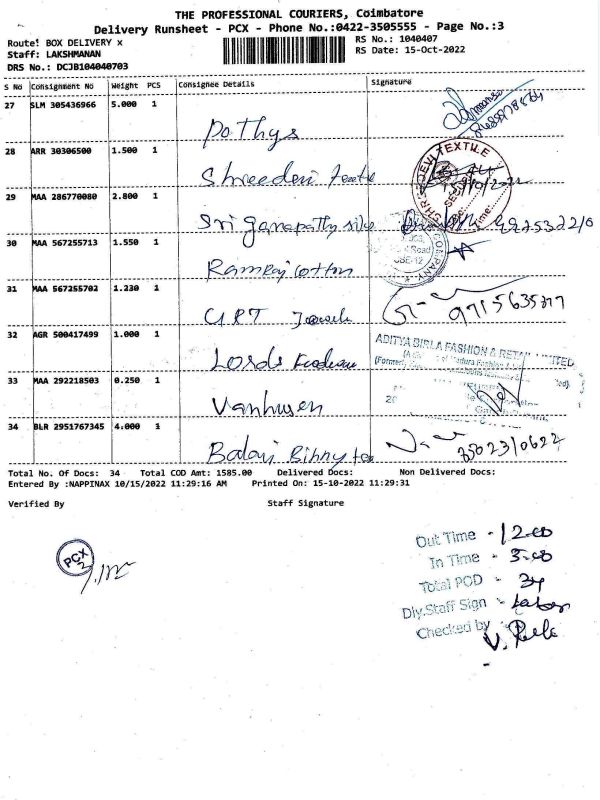 THE PROFESSIONAL COURIERS, Coimbatore
Delivery Runsheet - PCX - Phone No.:0422-3505555 - Page No.:3
Route! BOX DELIVERY x RS No.: 1040407
Staff: LAKSHMANAN RS Date: 15-Oct-2022
DRS No.: DCJB104040703
S No Consignment No Weight PCS Consignee Details Signature
27 SLM 305436966 5.000 1
Pothys
28 ARR 30306500 1.500 1
Shreedevi Textile
SHREE DEVI TEXTILE
29 MAA 286770080 2.800 1
Sri Ganapathy silks
30 MAA 567255713 1.550 1
CBE-12
Ramraj Cotton
31 MAA 567255702 1.230 1
9715635277
GRT
32 AGR 500417499 1.000 1
ADITYA BIRLA FASHION & RETAIL LIMITED
Lords
33 MAA 292218503 0.250 1
Vanhusen
34 BLR 2951767345 4.000 1
Balaji
Total No. Of Docs: 34 Total COD Amt: 1585.00 Delivered Docs: Non Delivered Docs:
Entered By :NAPPINAX 10/15/2022 11:29:16 AM Printed On: 15-10-2022 11:29:31
Verified By Staff Signature
PCX
2
Out Time - 12.00
In Time - 5.00
Total POD - 34
Dly.Staff Sign -
Checked by